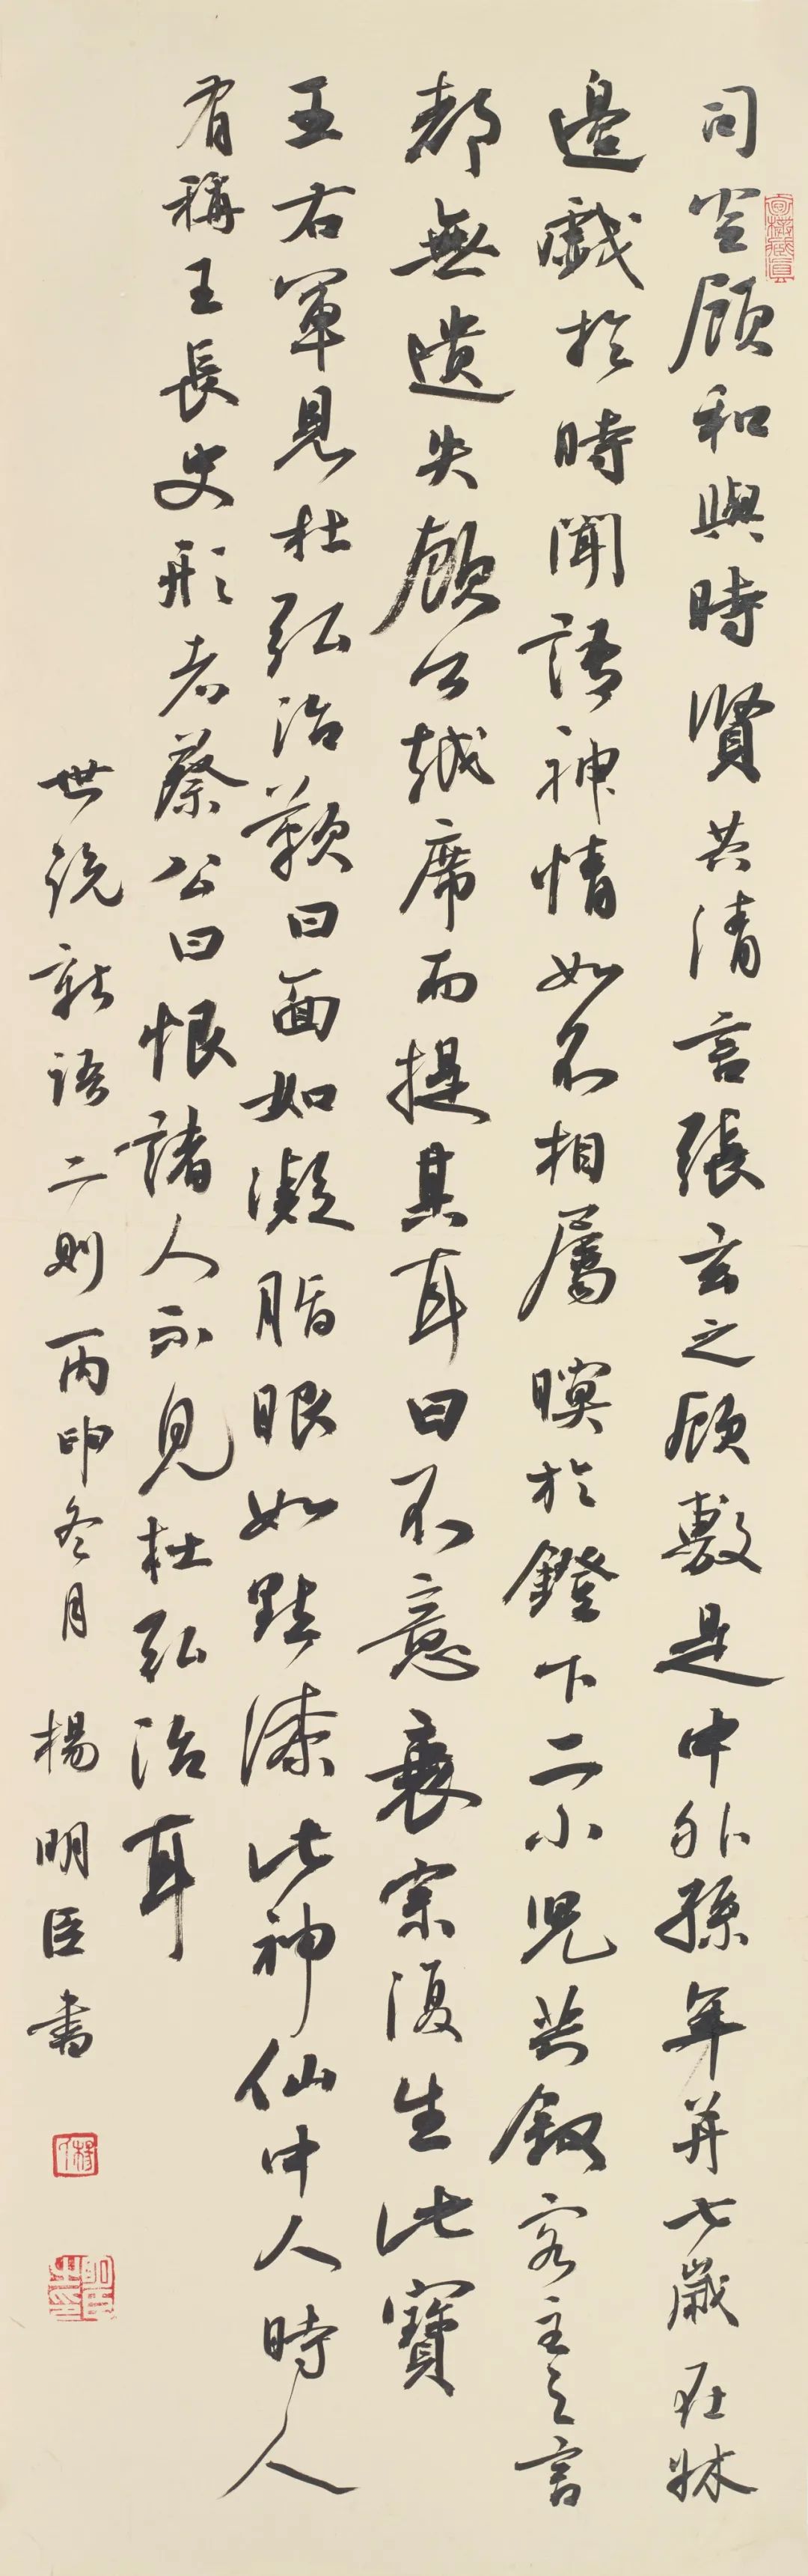 司空顧和與時賢共清言張玄之顧敷是中外孫年并七歲在牀
邊戲於時聞語神情如不相屬暝於鐙下二小兒共敘客主之言
都無遺失顧公越席而提其耳曰不意衰宗復生此寶
王右軍見杜弘治歎曰面如凝脂眼如點漆此神仙中人時人
有稱王長史形者蔡公曰恨諸人不見杜弘治耳
世說新語二則丙申冬月 楊明臣書